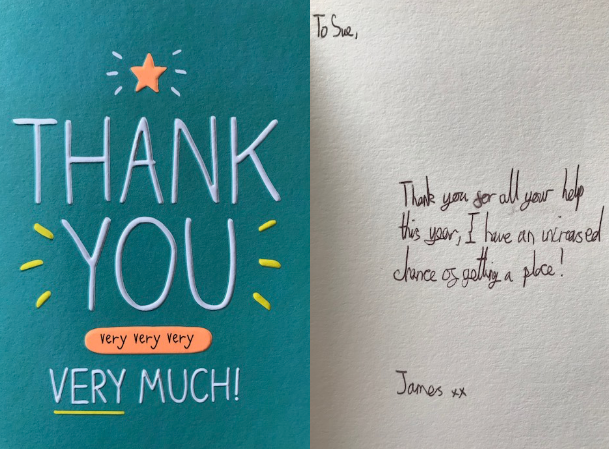 THANK
YOU
very very very
VERY MUCH!
To Sue,
Thank you for all your help
this year, I have an increased
chance of getting a place!
James xx